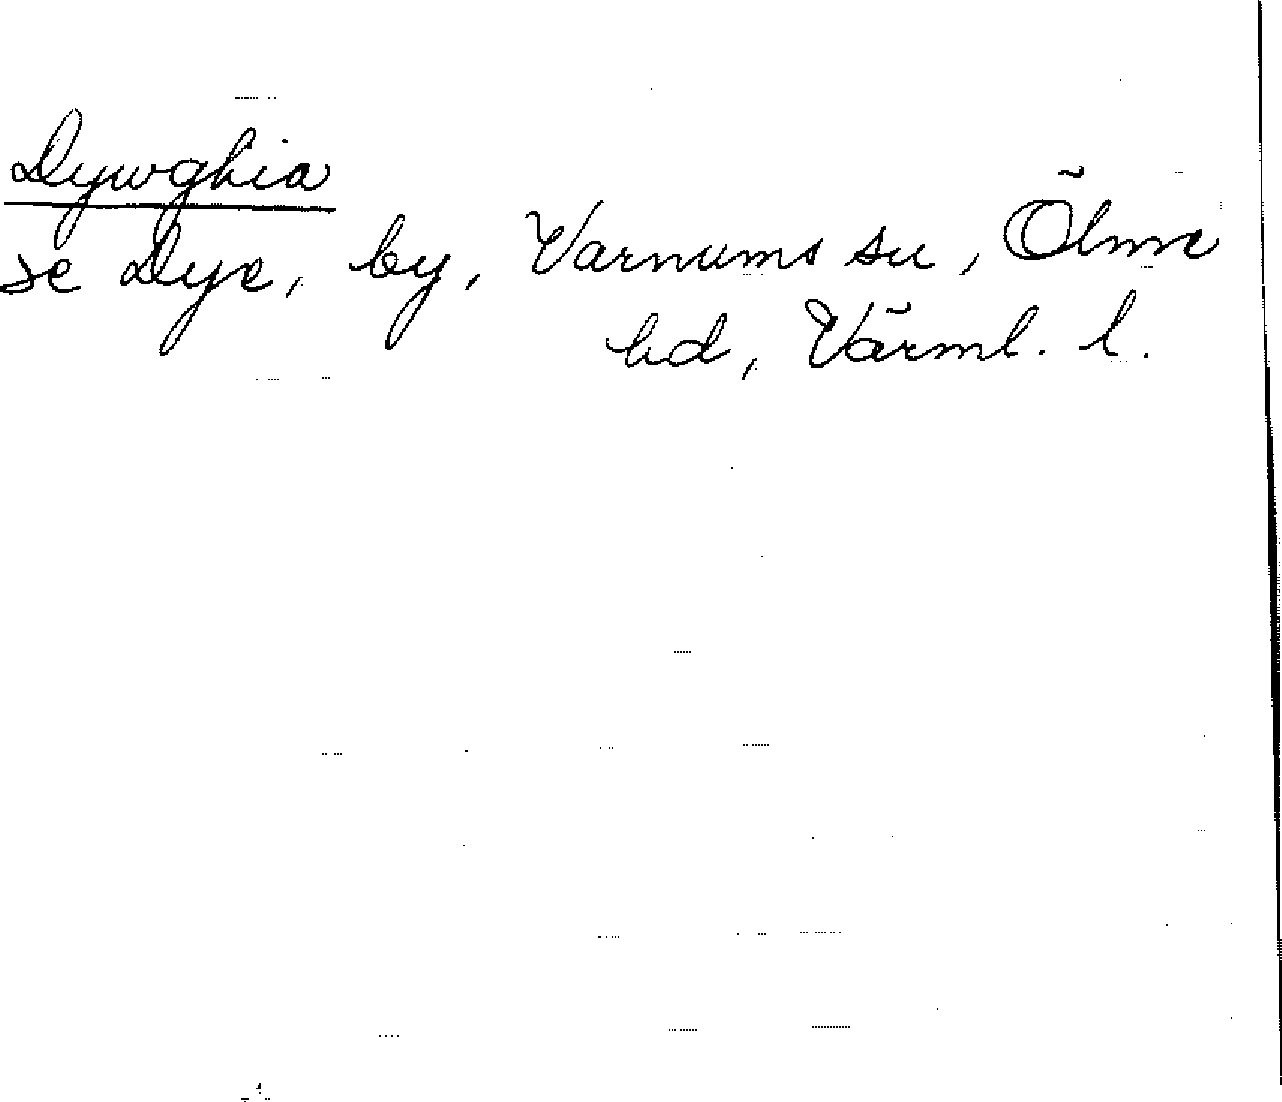 Dywghia
se Dye, by, Varnums sn, Ölme
hd, Värml. l.